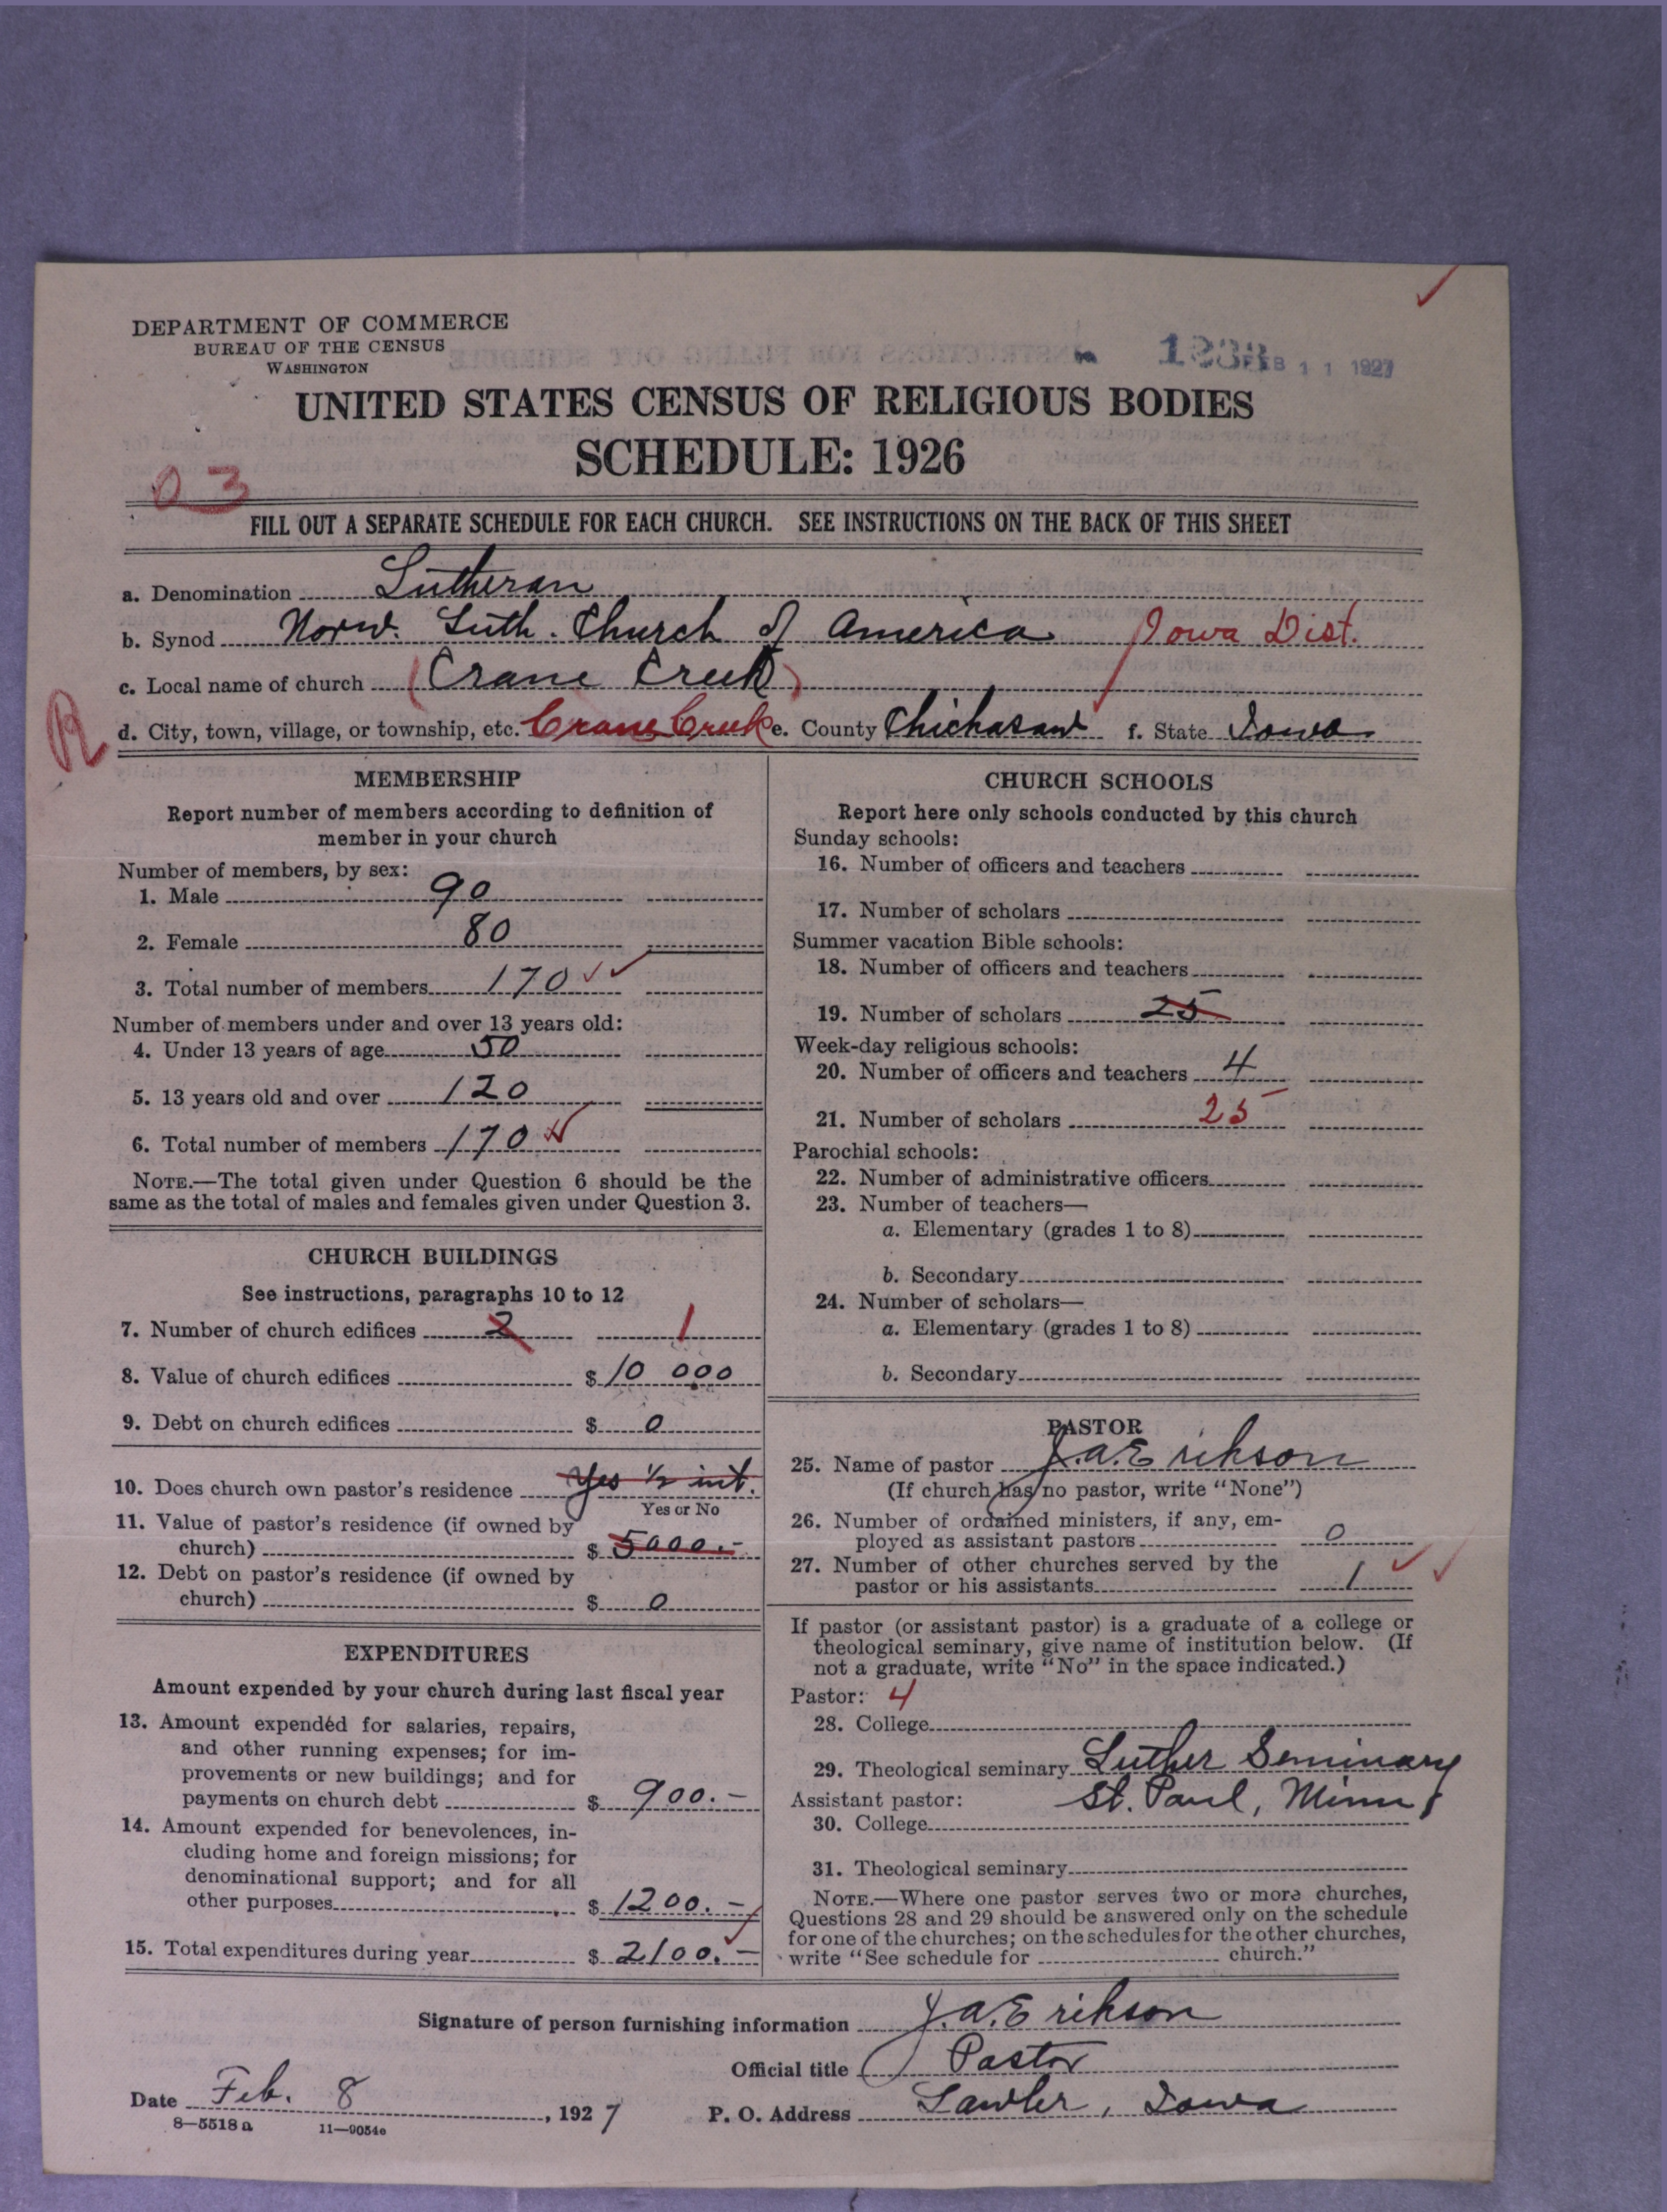 DEPARTMENT OF COMMERCE
BUREAU OF THE CENSUS
WASHINGTON
FEB 11 1927
UNITED STATES CENSUS OF RELIGIOUS BODIES
SCHEDULE: 1926
03
FILL OUT A SEPARATE SCHEDULE FOR EACH CHURCH. SEE INSTRUCTIONS ON THE BACK OF THIS SHEET
a. Denomination Lutheran
b. Synod Norw. Luth. Church of America Iowa Dist.
c. Local name of church (Crane Creek)
R
d. City, town, village, or township, etc. Crane Creek e. County Chickasaw f. State Iowa
MEMBERSHIP
Report number of members according to definition of
member in your church
Number of members, by sex:
1. Male 90
2. Female 80
3. Total number of members 170
Number of members under and over 13 years old:
4. Under 13 years of age 50
5. 13 years old and over 120
6. Total number of members 170
NOTE.—The total given under Question 6 should be the
same as the total of males and females given under Question 3.
CHURCH BUILDINGS
See instructions, paragraphs 10 to 12
7. Number of church edifices 2 1
8. Value of church edifices $ 10 000
9. Debt on church edifices $ 0
10. Does church own pastor's residence Yes 1/2 int.
Yes or No
11. Value of pastor's residence (if owned by
church) $ 5000.-
12. Debt on pastor's residence (if owned by
church) $ 0
EXPENDITURES
Amount expended by your church during last fiscal year
13. Amount expended for salaries, repairs,
and other running expenses; for im-
provements or new buildings; and for
payments on church debt $ 900.-
14. Amount expended for benevolences, in-
cluding home and foreign missions; for
denominational support; and for all
other purposes $ 1200.-
15. Total expenditures during year $ 2100.-
CHURCH SCHOOLS
Report here only schools conducted by this church
Sunday schools:
16. Number of officers and teachers
17. Number of scholars
Summer vacation Bible schools:
18. Number of officers and teachers
19. Number of scholars 25
Week-day religious schools:
20. Number of officers and teachers 4
21. Number of scholars 25
Parochial schools:
22. Number of administrative officers
23. Number of teachers—
a. Elementary (grades 1 to 8)
b. Secondary
24. Number of scholars—
a. Elementary (grades 1 to 8)
b. Secondary
PASTOR
25. Name of pastor J.A. Erikson
(If church has no pastor, write "None")
26. Number of ordained ministers, if any, em-
ployed as assistant pastors 0
27. Number of other churches served by the
pastor or his assistants 1
If pastor (or assistant pastor) is a graduate of a college or
theological seminary, give name of institution below. (If
not a graduate, write "No" in the space indicated.)
Pastor: 4
28. College
29. Theological seminary Luther Seminary
Assistant pastor: St. Paul, Minn
30. College
31. Theological seminary
NOTE.—Where one pastor serves two or more churches,
Questions 28 and 29 should be answered only on the schedule
for one of the churches; on the schedules for the other churches,
write "See schedule for church."
Signature of person furnishing information J.A. Erikson
Official title Pastor
Date Feb. 8, 1927 P. O. Address Lawler, Iowa
8—5518a 11—9054e